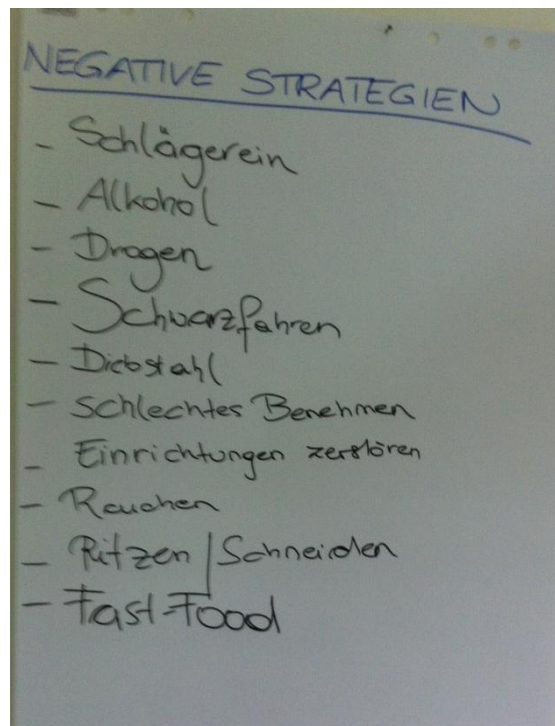 NEGATIVE STRATEGIEN
- Schlägerein
- Alkohol
- Drogen
- Schwarzfahren
- Diebstahl
- schlechtes Benehmen
- Einrichtungen zerstören
- Rauchen
- Ritzen / Schneiden
- Fast-Food